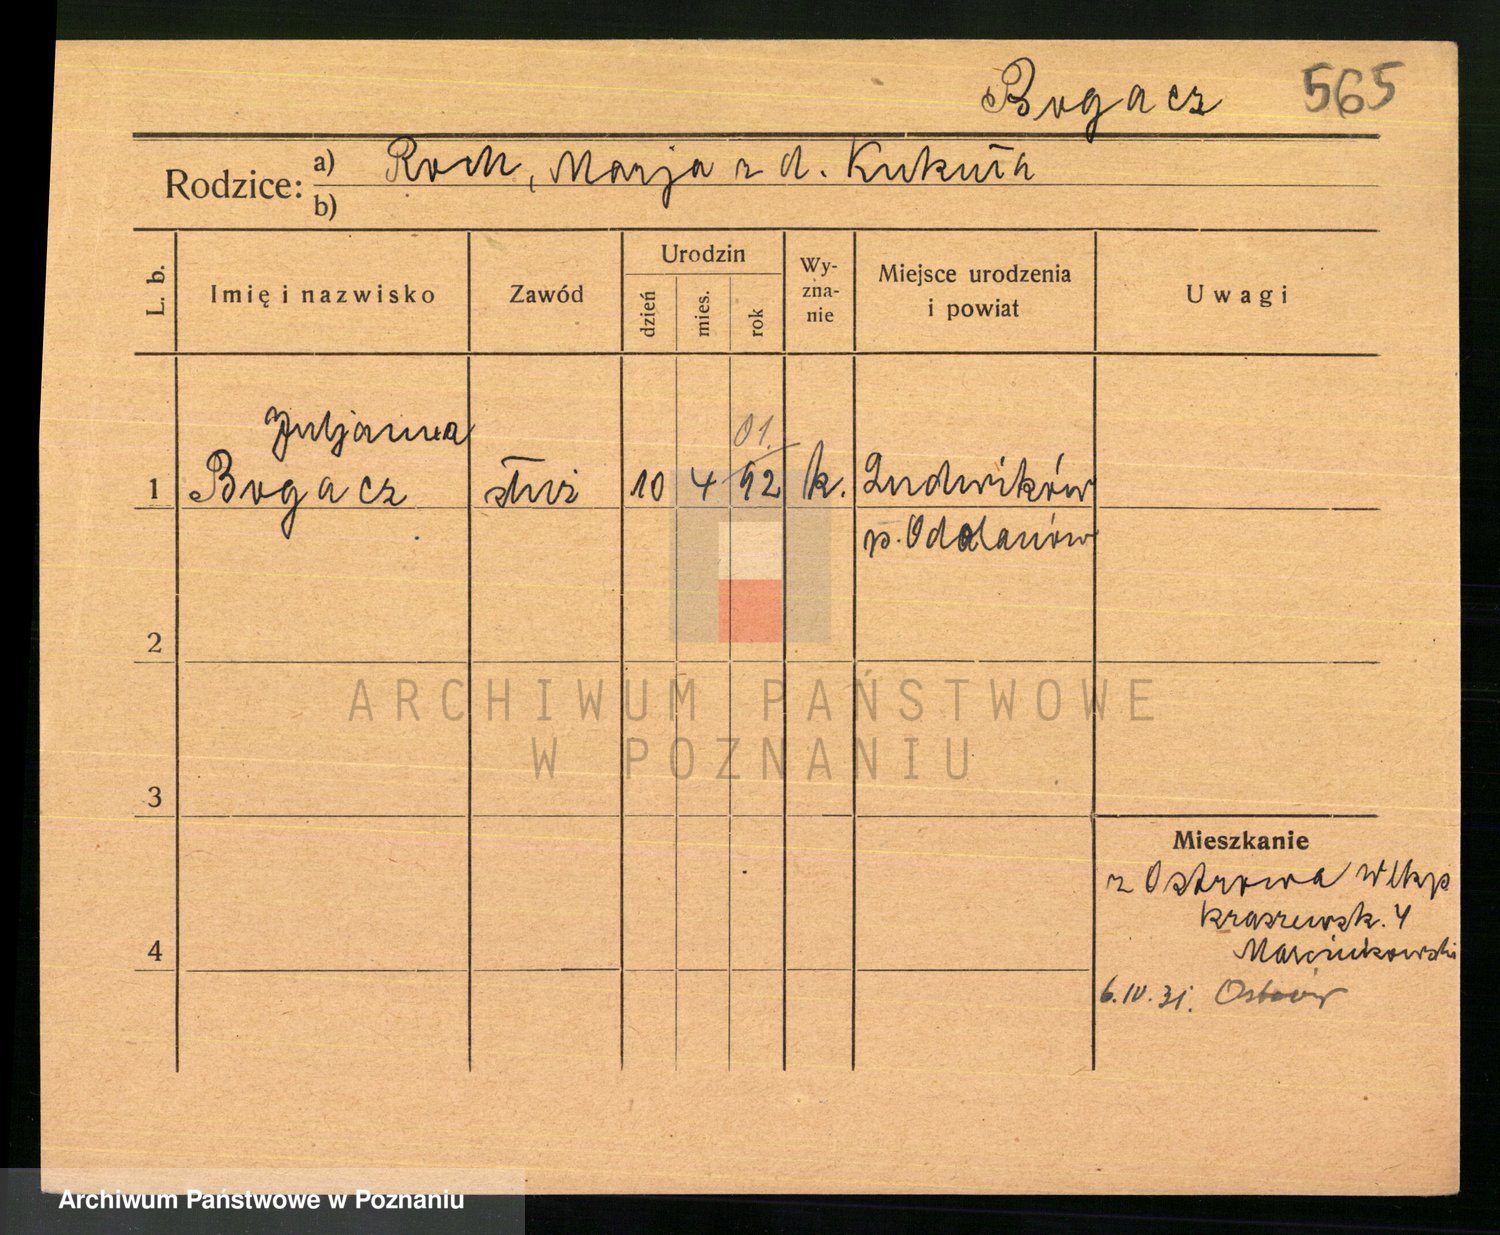 Bogacz 565
Rodzice: a) Roch, Marja z d. Kukuła
b)
L. b.
Imię i nazwisko
Zawód
Urodzin
dzień
mies.
rok
Wy-
zna-
nie
Miejsce urodzenia
i powiat
Uwagi
Juljanna
01.
1 Bogacz służ 10 4 92 k. Ludwików
p. Odolanów
2
3
4
Mieszkanie
z Ostrowa Wlkp
Kraszewsk. 4
Marcinkowski
6.IV.31. Ostrów
ARCHIWUM PAŃSTWOWE
W POZNANIU
Archiwum Państwowe w Poznaniu